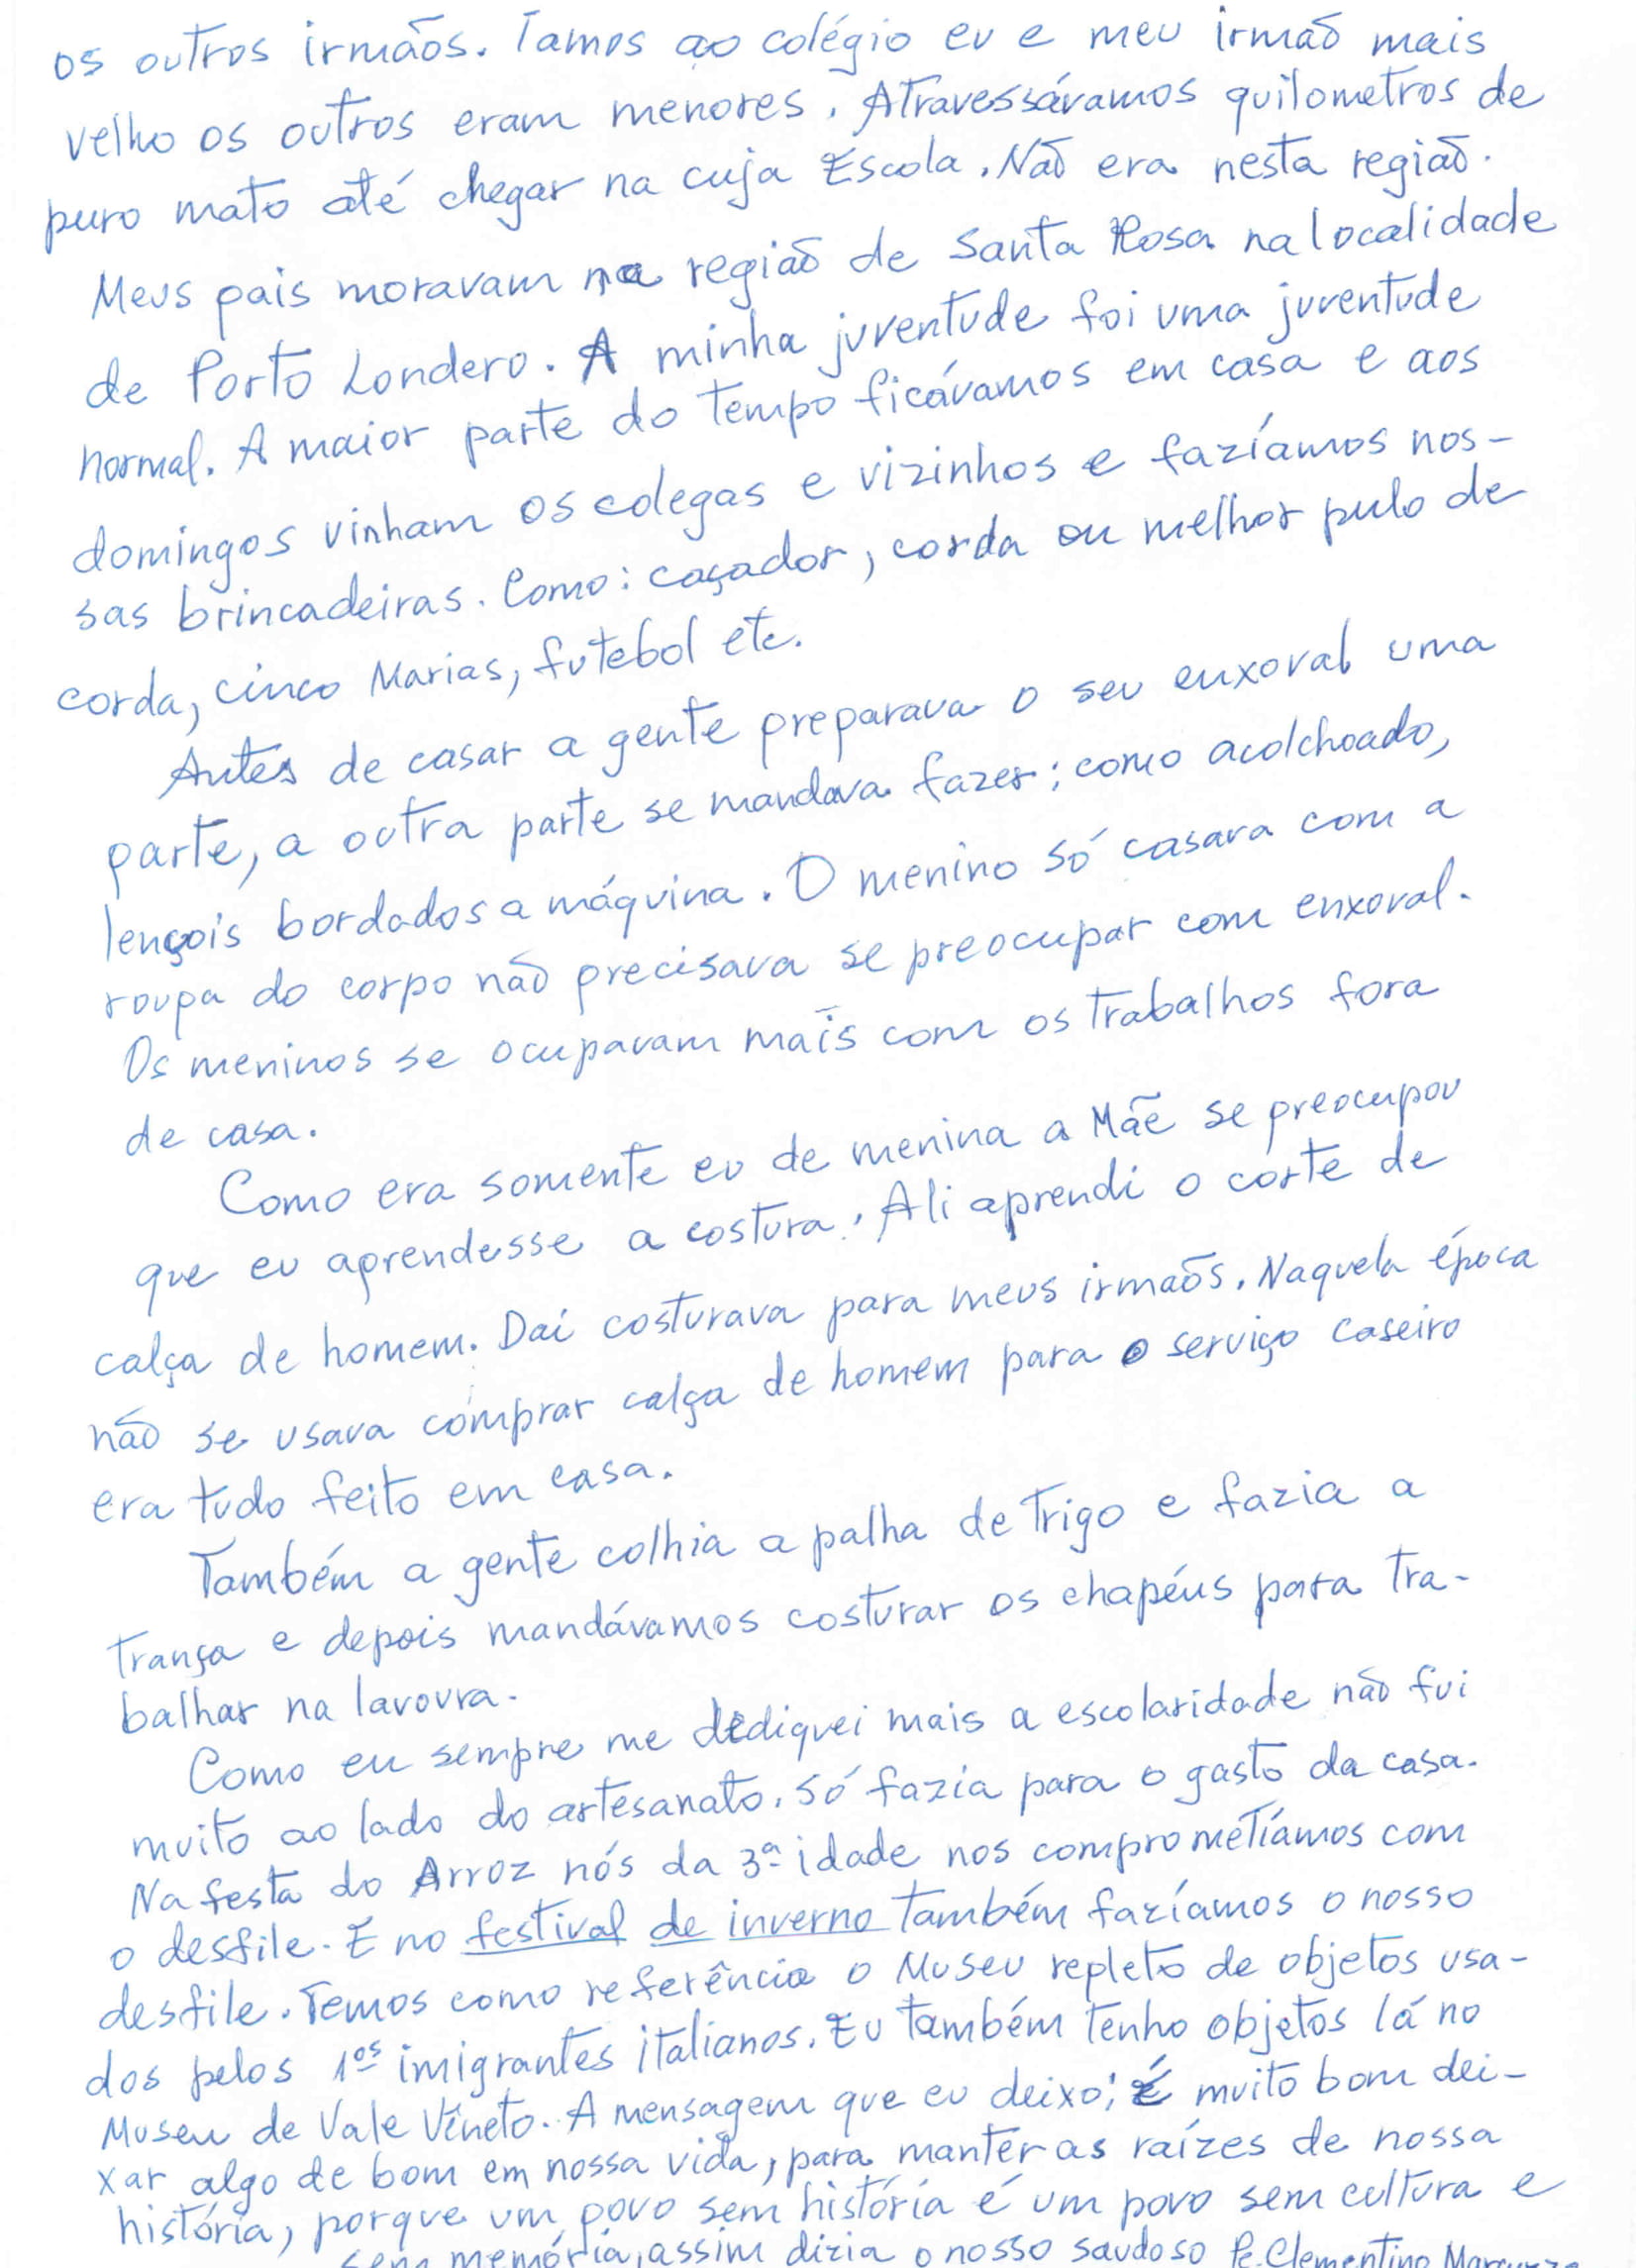 os outros irmãos. Íamos ao colégio eu e meu irmão mais
velho os outros eram menores. Atravessávamos quilometros de
puro mato até chegar na cuja Escola. Não era nesta região.
Meus pais moravam na região de Santa Rosa na localidade
de Porto Londero. A minha juventude foi uma juventude
normal. A maior parte do tempo ficávamos em casa e aos
domingos vinham os colegas e vizinhos e fazíamos nos-
sas brincadeiras. Como: caçador, corda ou melhor pulo de
corda, cinco Marias, futebol etc.
Antes de casar a gente preparava o seu enxoval uma
parte, a outra parte se mandava fazer; como acolchoado,
lençois bordados a máquina. O menino só casava com a
roupa do corpo não precisava se preocupar com enxoval.
Os meninos se ocupavam mais com os trabalhos fora
de casa.
Como era somente eu de menina a Mãe se preocupou
que eu aprendesse a costura. Ali aprendi o corte de
calça de homem. Daí costurava para meus irmãos. Naquela época
não se usava comprar calça de homem para o serviço caseiro
era tudo feito em casa.
Também a gente colhia a palha de trigo e fazia a
trança e depois mandávamos costurar os chapéus para tra-
balhar na lavoura.
Como eu sempre me dediquei mais a escolaridade não fui
muito ao lado do artesanato. Só fazia para o gasto da casa.
Na festa do Arroz nós da 3ª idade nos comprometíamos com
o desfile. E no festival de inverno também fazíamos o nosso
desfile. Temos como referência o Museu repleto de objetos usa-
dos pelos 1os imigrantes italianos. Eu também tenho objetos lá no
Museu de Vale Vêneto. A mensagem que eu deixo; É muito bom dei-
xar algo de bom em nossa vida, para manter as raízes de nossa
história, porque um povo sem história é um povo sem cultura e
sem memória, assim dizia o nosso saudoso Pe. Clementino